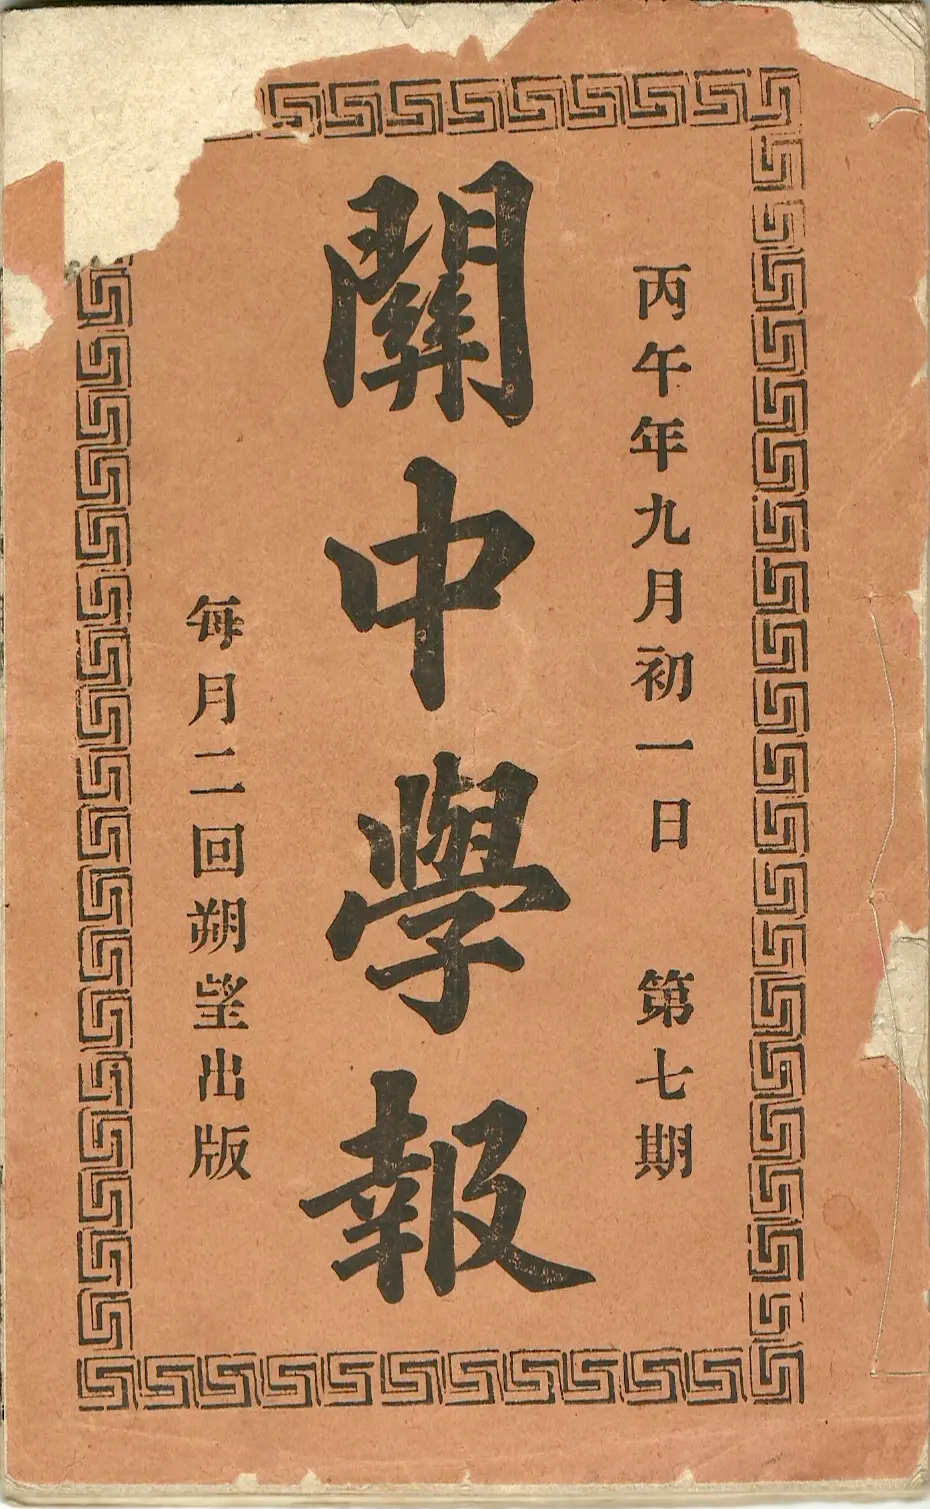 丙午年九月初一日 第七期
關中學報
每月二回朔望出版